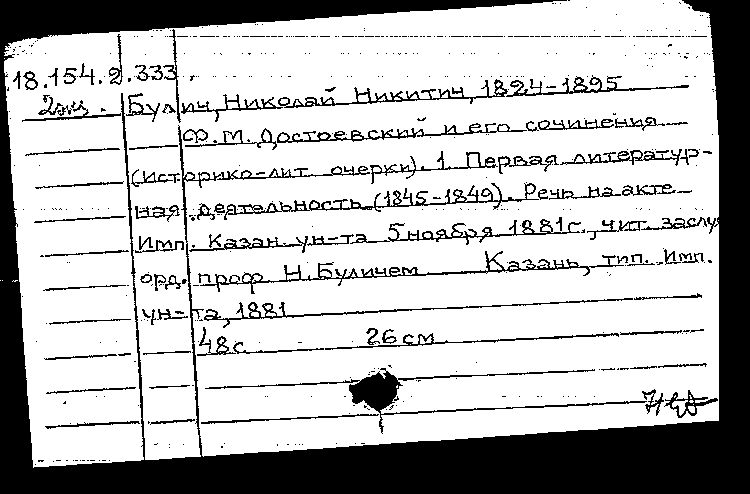 18.154.2.333.
2экз. Булич, Николай Никитич, 1824-1895
Ф.М. Достоевский и его сочинения
(историко-лит. очерки). 1. Первая литератур-
ная деятельность (1845-1849). Речь на акте
Имп. Казан. ун-та 5 ноября 1881г., чит. заслу
орд. проф. Н. Буличем Казань, тип. Имп.
ун-та, 1881
48с. 26см